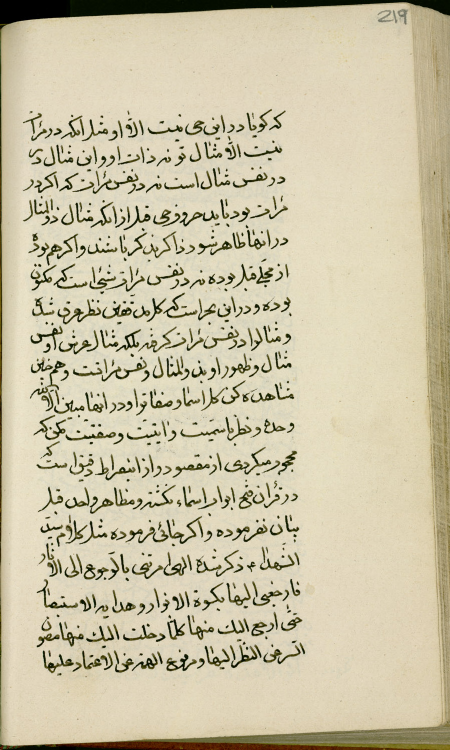 219
که کویا در این حی نیست الا او مثل انکه در مرات
نیست الا مثال تو نه ذات او و این مثال در
در نفس مثال است نه در نفس مرات که اکر در
مرات بود باید حروف حی قبل از انکه مثال ذو المثال
در انها ظاهر شود ذاکر بذکر باشند و اکر هم بوده
از محل قبل بوده نه در نفس مرات شیئ است که مکنون
بوده و در این بحر است که کل من یدعی نظر غرق شده
و مثال را در نفس مرات کرفته بلکه مثال عرش او نفس
مثال و ظهور او بذو المثال و نفس مرات و هم چنین
مشاهده کن کل اسماء و صفات را و در انها مبین الا الله
وحده و نظر باسمیت و اینیت و صفتیت مکن که
محجوب میکردی از مقصود و از این صراط دقیق است که
در قران فتح ابواب اسماء نکشته و مظاهر واحد قبل
بیان نفرموده و اکر جائی فرموده مثل کلام سید
الشهداء ع ذکر شده الهی امرتنی بالرجوع الی الاثار
فارجعنی الیها بکسوة الانوار و هدایة الاستبصار
حتی ارجع الیک منها کما دخلت الیک منها مصون
السر عن النظر الیها و مرفوع الهمة عن الاعتماد علیها